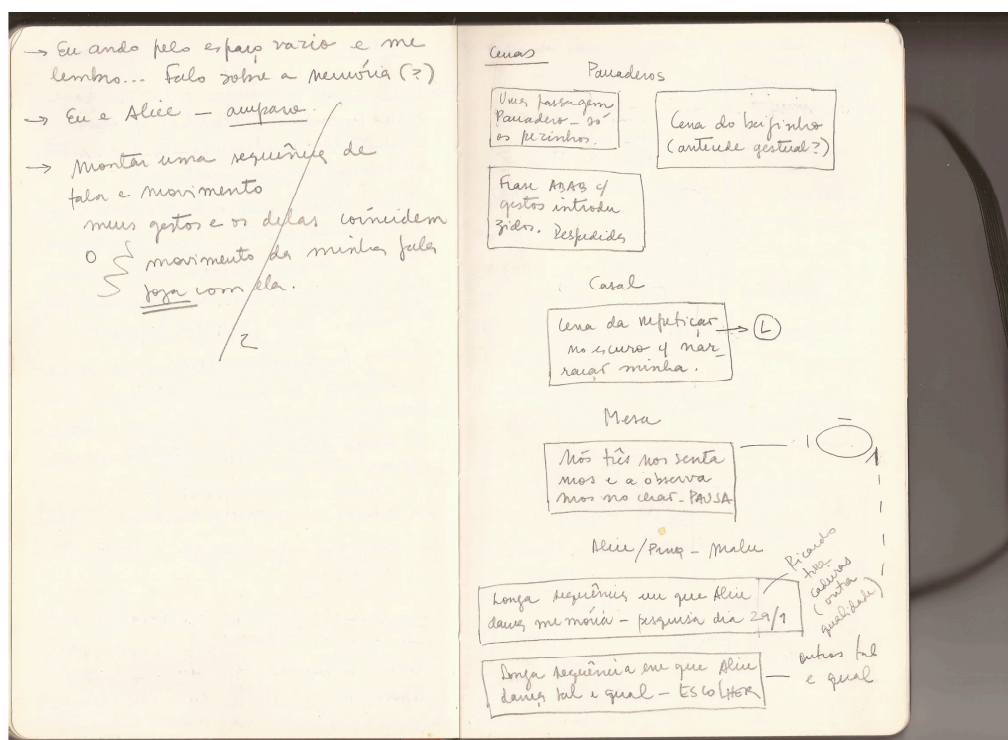 → Eu ando pelo espaço vazio e me
lembro... Falo sobre a memória (?)
→ Eu e Alice – amparo.
→ Montar uma sequência de
fala e movimento
meus gestos e os delas coincidem
movimento da minha fala
joga com ela.
2
Cenas
Panaderos
Uma passagem
Panadero – só
os pezinhos.
Cena do beijinho
(antende gestual?)
Frase ABAB c/
gestos introdu
zidos. Despedida
Casal
Cena da repetição → L
no escuro c/ nar-
ração minha.
Mesa
Nós três nos senta
mos e a observa
mos no chão – PAUSA
Alice / – Malu
Longa sequência em que Alice
dança memória – pesquisa dia 29/1
Ricardo
tira
cadeiras
(outra
qualidade)
Longa sequência em que Alice
dança tal e qual – ESCOLHER
outras tal
e qual